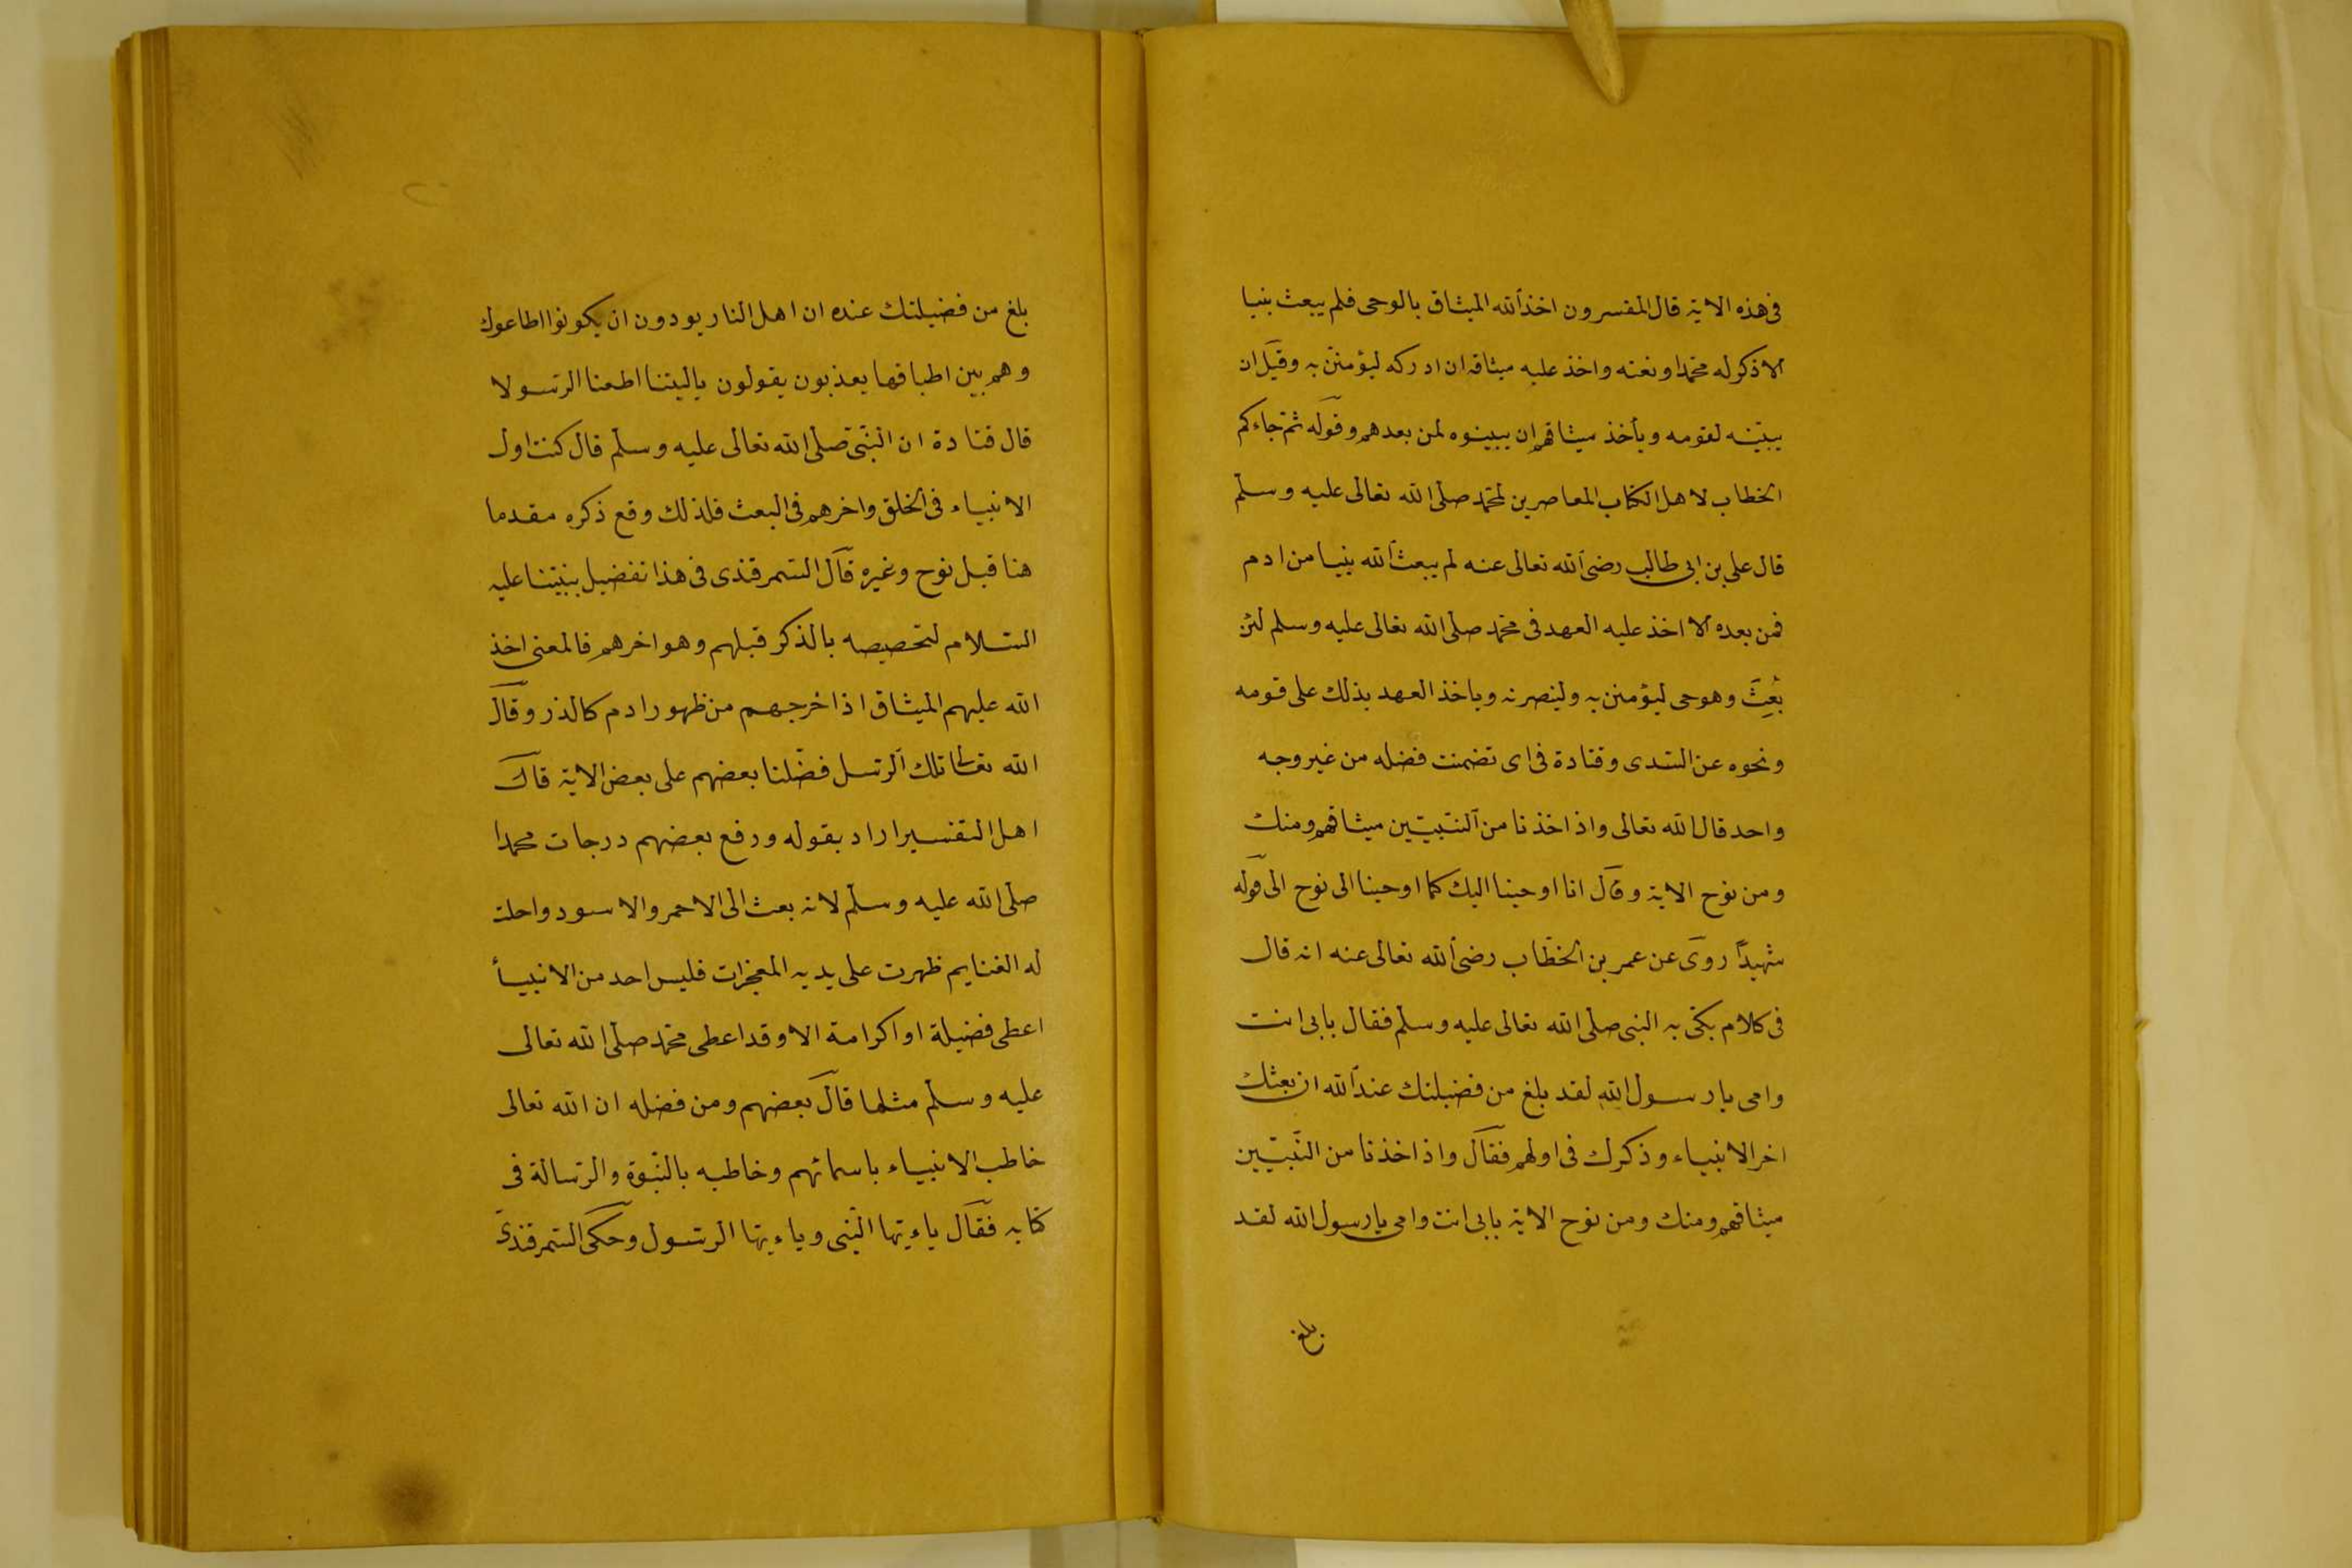 فى هذه الاية قال المفسرون اخذ الله الميثاق بالوحى فلم يبعث نبيا
الا ذكر له محمدا ونعته واخذ عليه ميثاقه ان ادركه ليؤمنن به وقيل ان
يبيّنه لقومه ويأخذ ميثاقهم ان يبينوه لمن بعدهم وقوله ثم جاءكم
الخطاب لاهل الكتاب المعاصرين لمحمّد صلى الله تعالى عليه وسلّم
قال على بن ابى طالب رضى الله تعالى عنه لم يبعث الله نبيا من ادم
فمن بعده الا اخذ عليه العهد فى محمّد صلى الله تعالى عليه وسلم لئن
بُعِثَ وهو حى ليؤمنن به ولينصرنه وياخذ العهد بذلك على قومه
ونحوه عن السّدى وقتادة فى اى تضمنت فضله من غير وجه
واحد قال الله تعالى واذ اخذنا من النّبيّين ميثاقهم ومنك
ومن نوح الاية وقال انا اوحينا اليك كما اوحينا الى نوح الى قوله
شهيدًا روى عن عمر بن الخطّاب رضى الله تعالى عنه انه قال
فى كلام بكى به النبى صلى الله تعالى عليه وسلّم فقال بابى انت
وامى يا رسول الله لقد بلغ من فضيلتك عند الله ان بعثك
اخر الانبياء وذكرك فى اولهم فقال واذ اخذنا من النّبيّين
ميثاقهم ومنك ومن نوح الاية بابى انت وامى يا رسول الله لقد
بلغ
بلغ من فضيلتك عنده ان اهل النار يودون ان يكونوا اطاعوك
وهم بين اطباقها يعذبون يقولون ياليتنا اطعنا الرّسولا
قال قتادة ان النّبىّ صلّى الله تعالى عليه وسلّم قال كنت اول
الانبياء فى الخلق واخرهم فى البعث فلذلك وقع ذكره مقدما
هنا قبل نوح وغيره قال السّمرقندى فى هذا تفضيل نبيّنا عليه
السّلام لتخصيصه بالذكر قبلهم وهو اخرهم فالمعنى اخذ
الله عليهم الميثاق اذ اخرجهم من ظهور ادم كالذر وقال
الله تعالى تلك الرّسل فضّلنا بعضهم على بعض الاية قال
اهل التفسير اراد بقوله ورفع بعضهم درجات محمدا
صلّى الله عليه وسلّم لانه بعث الى الاحمر والاسود واحلت
له الغنايم ظهرت على يديه المعجزات فليس احد من الانبيأ
اعطى فضيلة او اكرامة الا وقد اعطى محمّد صلّى الله تعالى
عليه وسلّم مثلها قال بعضهم ومن فضله ان الله تعالى
خاطب الانبياء باسمائهم وخاطبه بالنّبوة والرّسالة فى
كتابه فقال ياءيّها النّبى وياءيّها الرّسول وحكى السّمرقندىّ